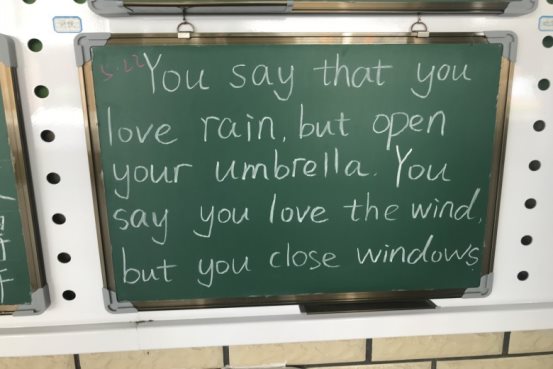 5.22
You say that you
love rain, but open
your umbrella. You
say you love the wind,
but you close windows